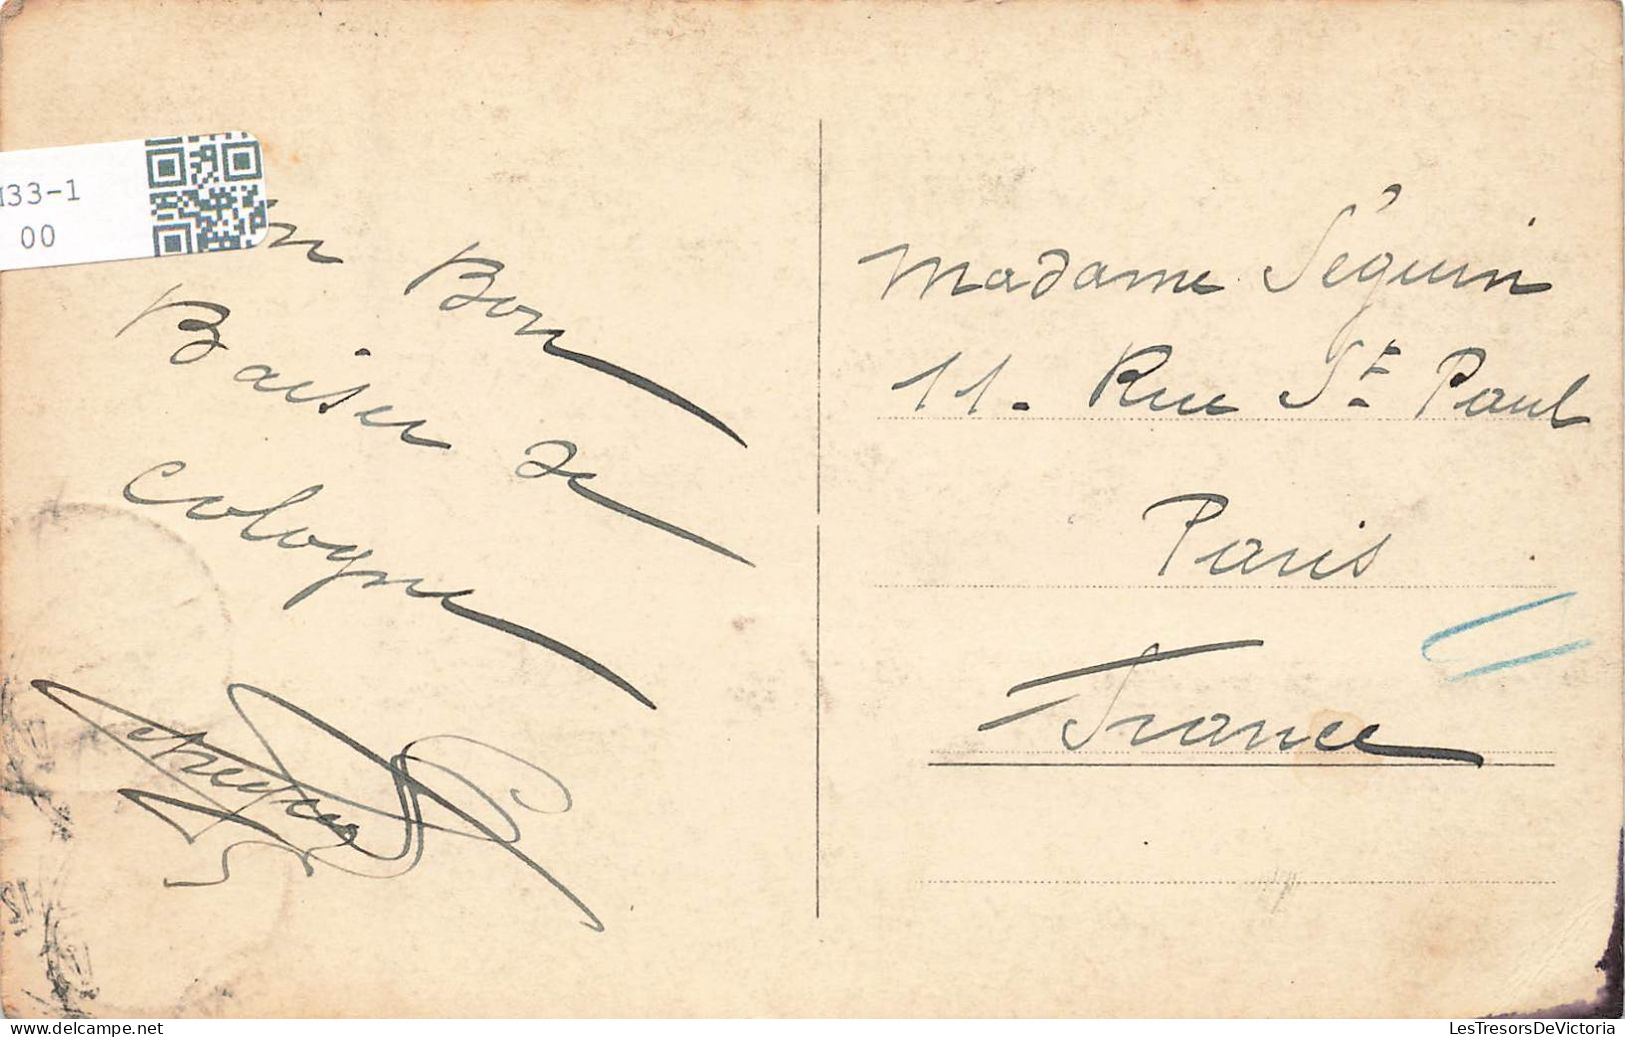 133-1
00
Bon
Baiser de
Cologne
Madame Séguin
11. Rue St Paul
Paris
France
LesTresorsDeVictoria